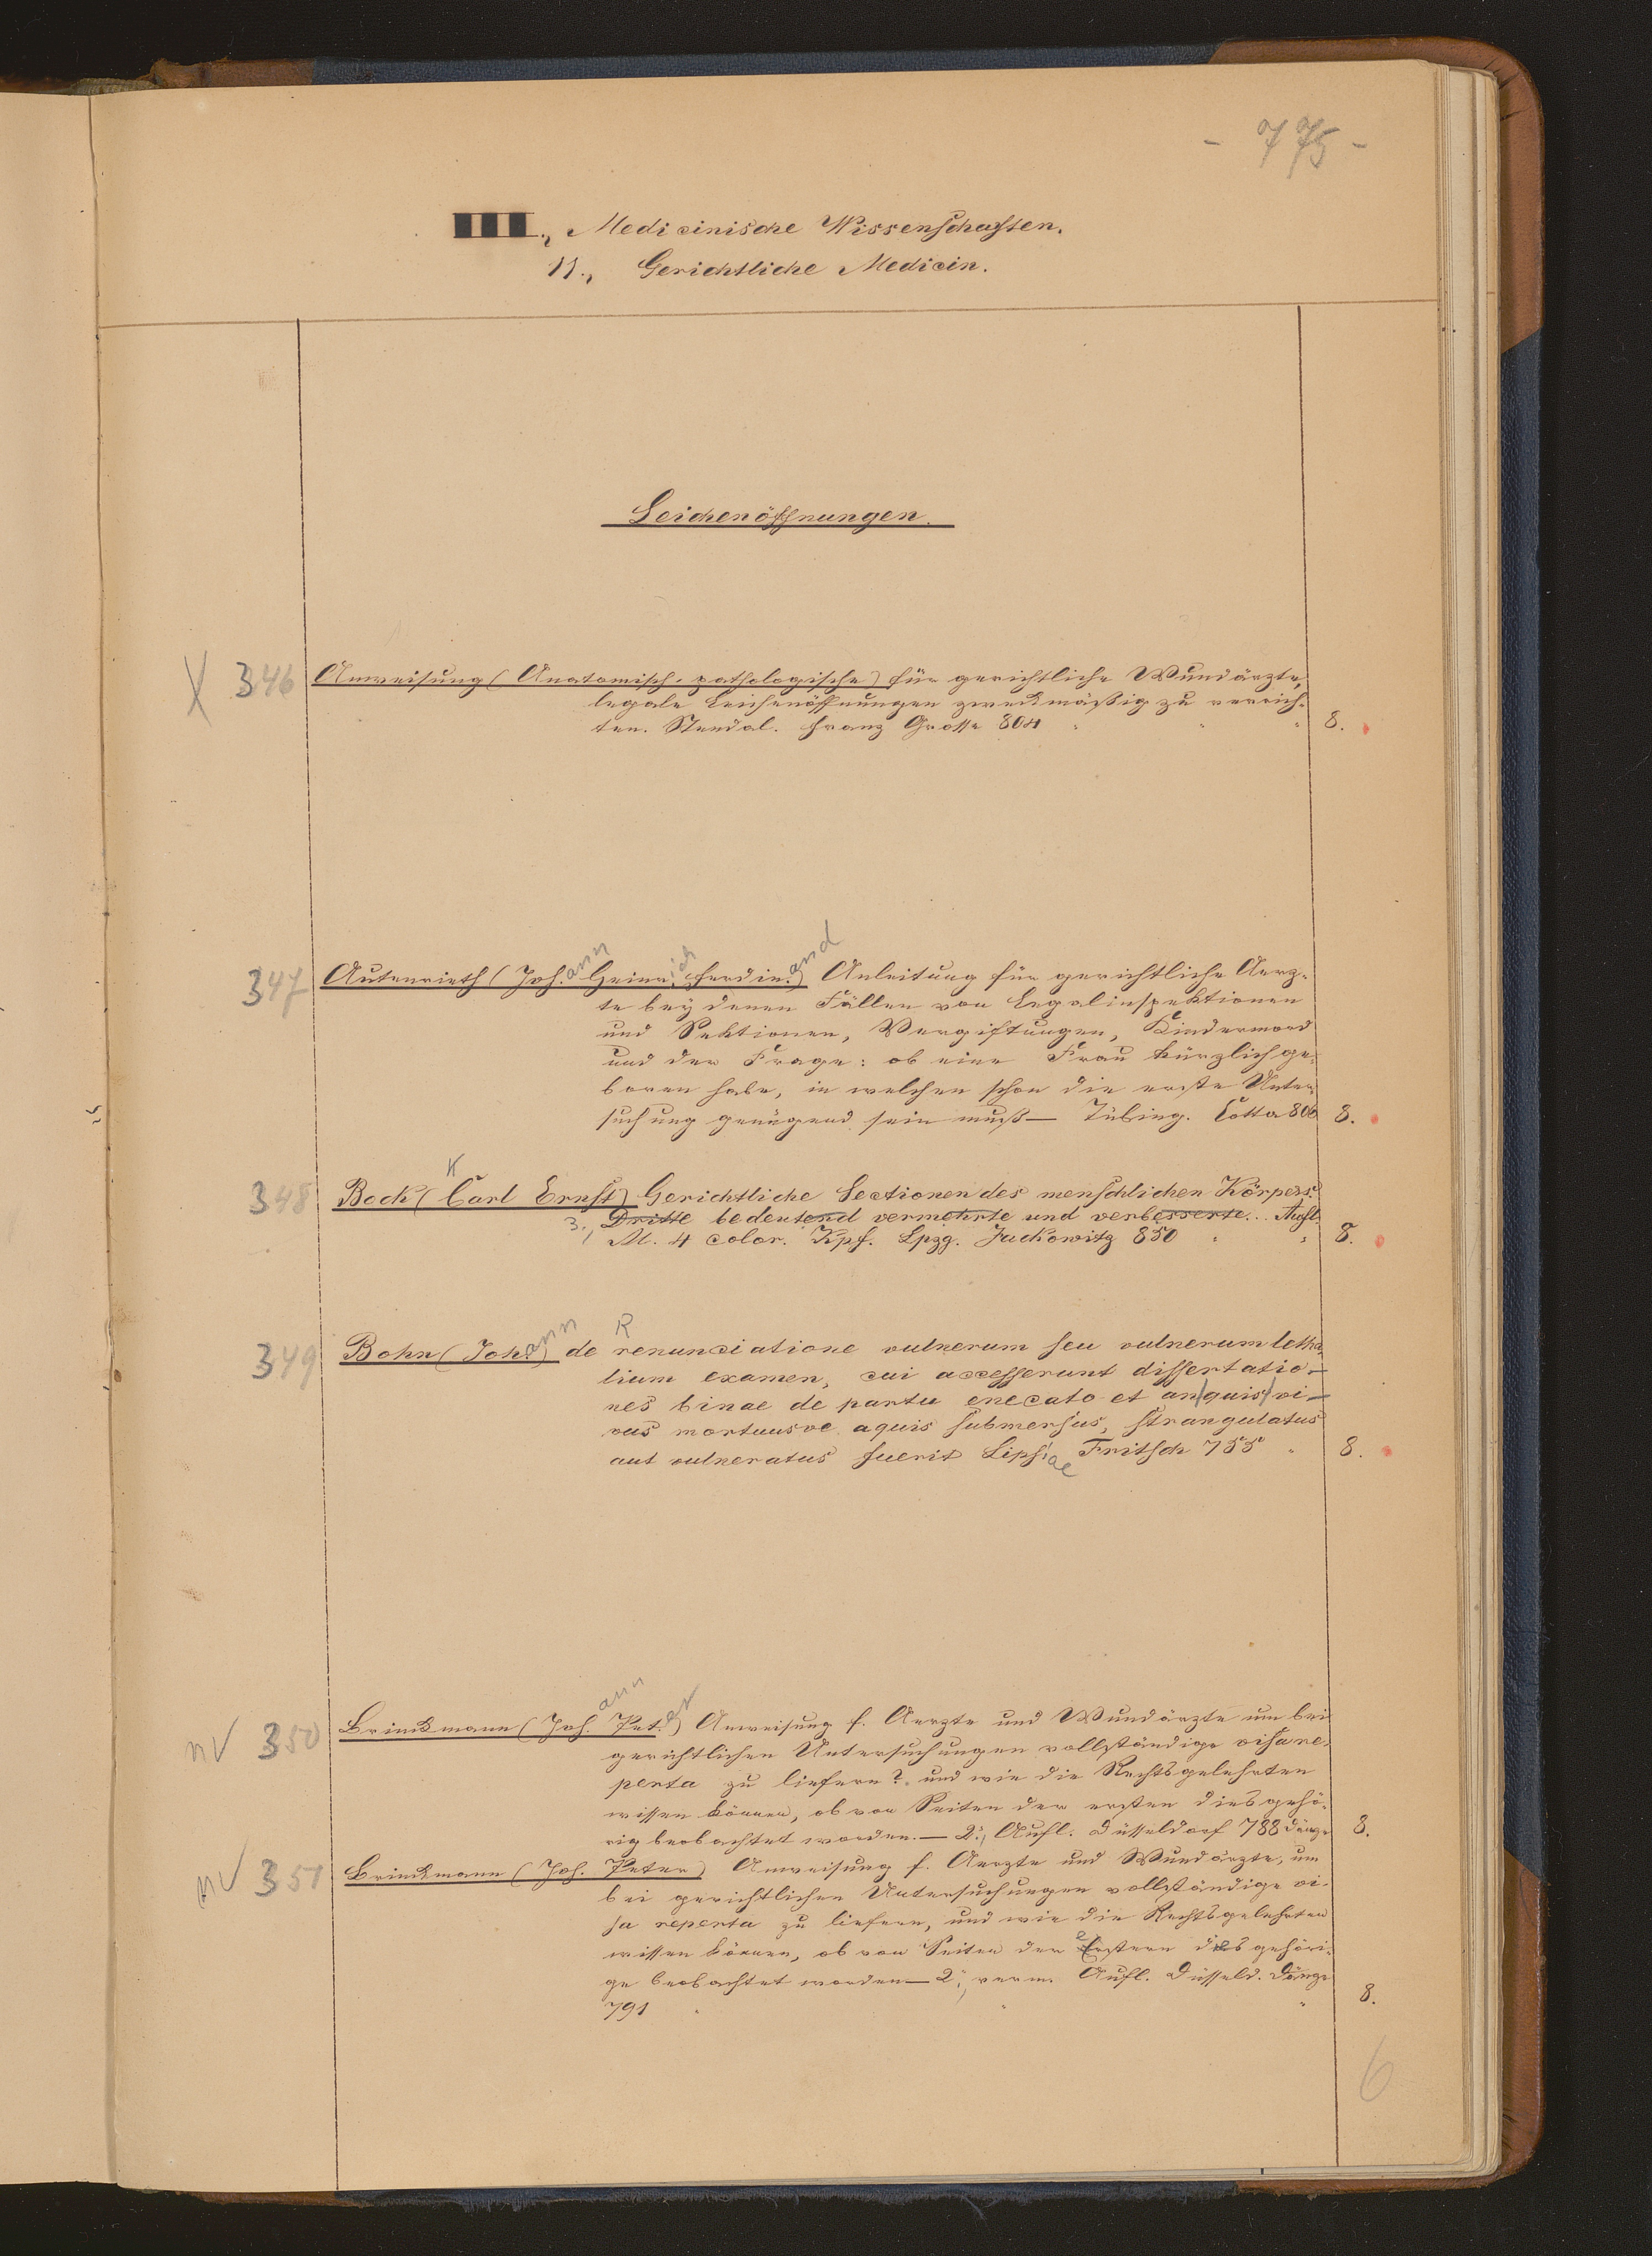 - 775 -
III., Medicinische Wissenschaften.
11., Gerichtliche Medicin.
Leichenöffnungen.
X 346 Anweisung (Anatomisch-pathologische) für gerichtliche Wundärzte,
legale Leichenöffnungen zweckmäßig zu verrich-
ten. Stendal. Franz Grosse 804 " " " 8.
347 Autenrieth (Joh.ann Heinr.ich Ferdin.and) Anleitung für gerichtliche Aerz-
te bey denen Fällen von Legalinspektionen
und Sektionen, Vergiftungen, Kindermord
und der Frage: ob eine Frau kürzlich ge-
boren habe, in welchen schon die erste Unter-
suchung genügend sein muß — Tübing. Cotta 806 8.
K
348 Bock (Carl Ernst) Gerichtliche Sectionen des menschlichen Körpers.
3., Dritte bedeutend vermehrte und verbesserte... Aufl.
M. 4 color. Kpf. Lpzg. Juckowitz 850 " " 8.
349 Bohn (Joh.ann) de Renunciatione vulnerum seu vulnerum letha-
lium examen, cui accesserunt dissertatio-
nes binae de partu enecato et an quis vi-
vus mortuusve aquis submersus, strangulatus
aut vulneratus fuerit Lipsiae Fritsch 755 " 8.
nV 350 Brinckmann (Joh.ann Pet.er) Anweisung f. Aerzte und Wundärzte um bei
gerichtlichen Untersuchungen vollständige visa re-
perta zu liefern? und wie die Rechtsgelehrten
wissen können, ob von Seiten der ersten dies gehö-
rig beobachtet worden. — 2., Aufl. Düsseldorf 788 Dänzer 8.
nV 351 Brinckmann (Joh. Peter) Anweisung f. Aerzte und Wundärzte, um
bei gerichtlichen Untersuchungen vollständige vi-
sa reperta zu liefern, und wie die Rechtsgelehrten
wissen können, ob von Seiten der Erstern dies gehöri-
ge beobachtet worden — 2., verm. Aufl. Düsseld. Dänzer
791 " " " 8.
6